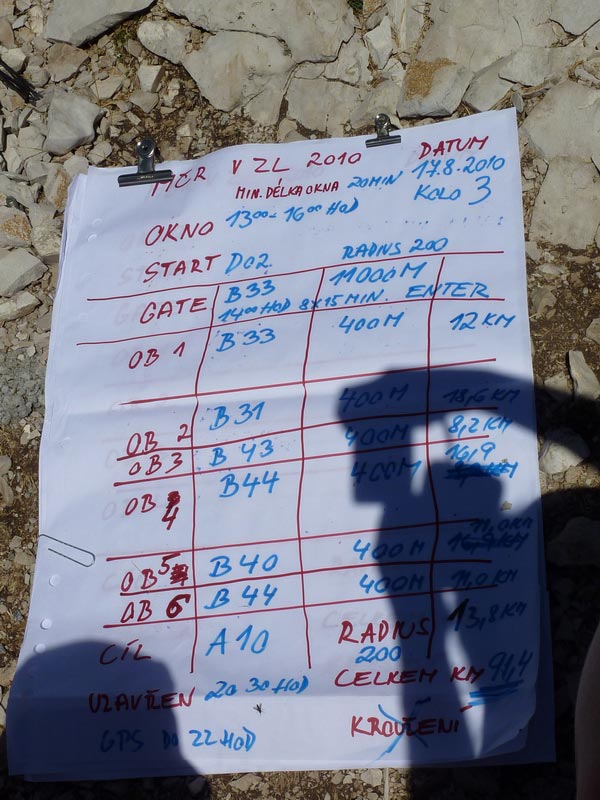 MČR V ZL 2010 DATUM
MIN. DÉLKA OKNA 20MIN 17.8.2010
OKNO 13⁰⁰-16⁰⁰ HOD KOLO 3
START D02 RADIUS 200
GATE B33 11000M
14⁰⁰ HOD 8X15 MIN. ENTER
OB 1 B33 400M 12 KM
OB 2 B31 400M 18,6 KM
OB 3 B43 400M 8,2 KM
OB 4 B44 400M 16,9
OB 5 B40 400M 11,0 KM
OB 6 B44 400M 11,0 KM
CÍL A10 RADIUS 200 13,8 KM
CELKEM KM 91,4
UZAVŘEN 20 30 HOD
GPS DO 22 HOD KROUŽENÍ